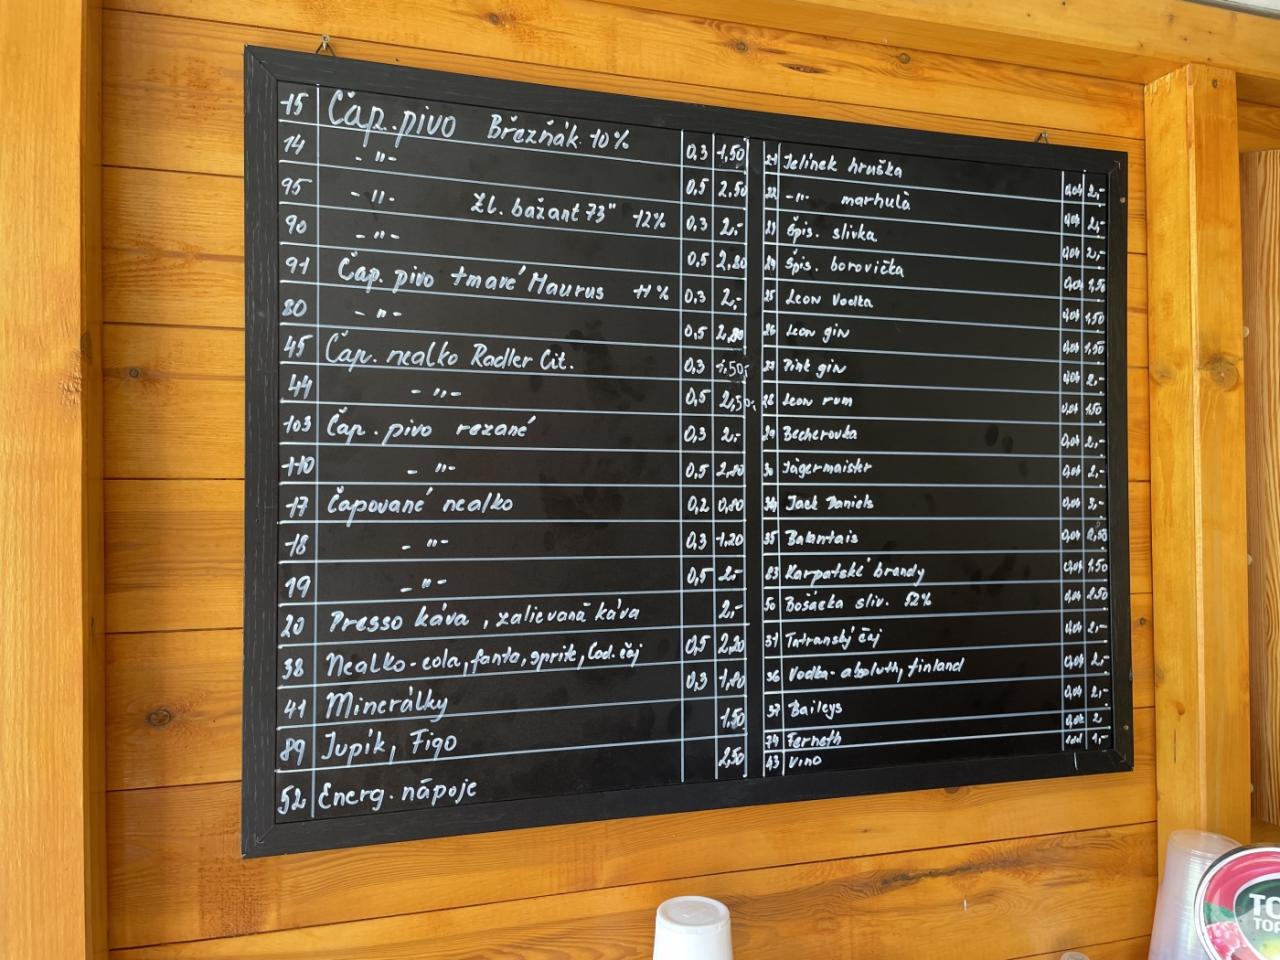 15 Čap. pivo Březňák 10% 0,3 1,50
14 -"- 0,5 2,50
95 -"- Zl. bažant 73" 12% 0,3 2,-
90 -"- 0,5 2,80
91 Čap. pivo tmavé Maurus 11% 0,3 2,-
80 -"- 0,5 2,80
45 Čap. nealko Radler Cit. 0,3 1,50
44 -"- 0,5 2,50
103 Čap. pivo rezané 0,3 2,-
110 -"- 0,5 2,80
17 Čapované nealko 0,2 0,80
18 -"- 0,3 1,20
19 -"- 0,5 2,-
20 Presso káva, zalievaná káva 2,-
38 Nealko-cola, fanta, sprite, Lad. čaj 0,5 2,20
41 Minerálky 0,3 1,80
89 Jupík, Figo 1,50
52 Energ. nápoje 2,50
21 Jelinek hruška 0,04 2,-
22 -"- marhulà 0,04 2,-
Špis. slivka 0,04 2,-
24 Špis. borovička 0,04 1,50
25 Leon Vodka 0,04 1,50
26 Leon gin 0,04 1,50
27 Pink gin 0,04 2,-
28 Leon rum 0,04 1,50
29 Becherovka 0,04 2,-
30 Jägermaister 0,04 2,-
34 Jack Daniels 0,04 3,-
35 Balantais 0,04 2,50
83 Karpatské brandy 0,04 1,50
50 Bošácka sliv. 52% 0,04 2,50
31 Tatranský čaj 0,04 2,-
36 Vodka-absoluth, finland 0,04 2,-
37 Baileys 0,04 2,-
74 Ferneth 0,04 2
43 Vino 1,-
TO
TOP